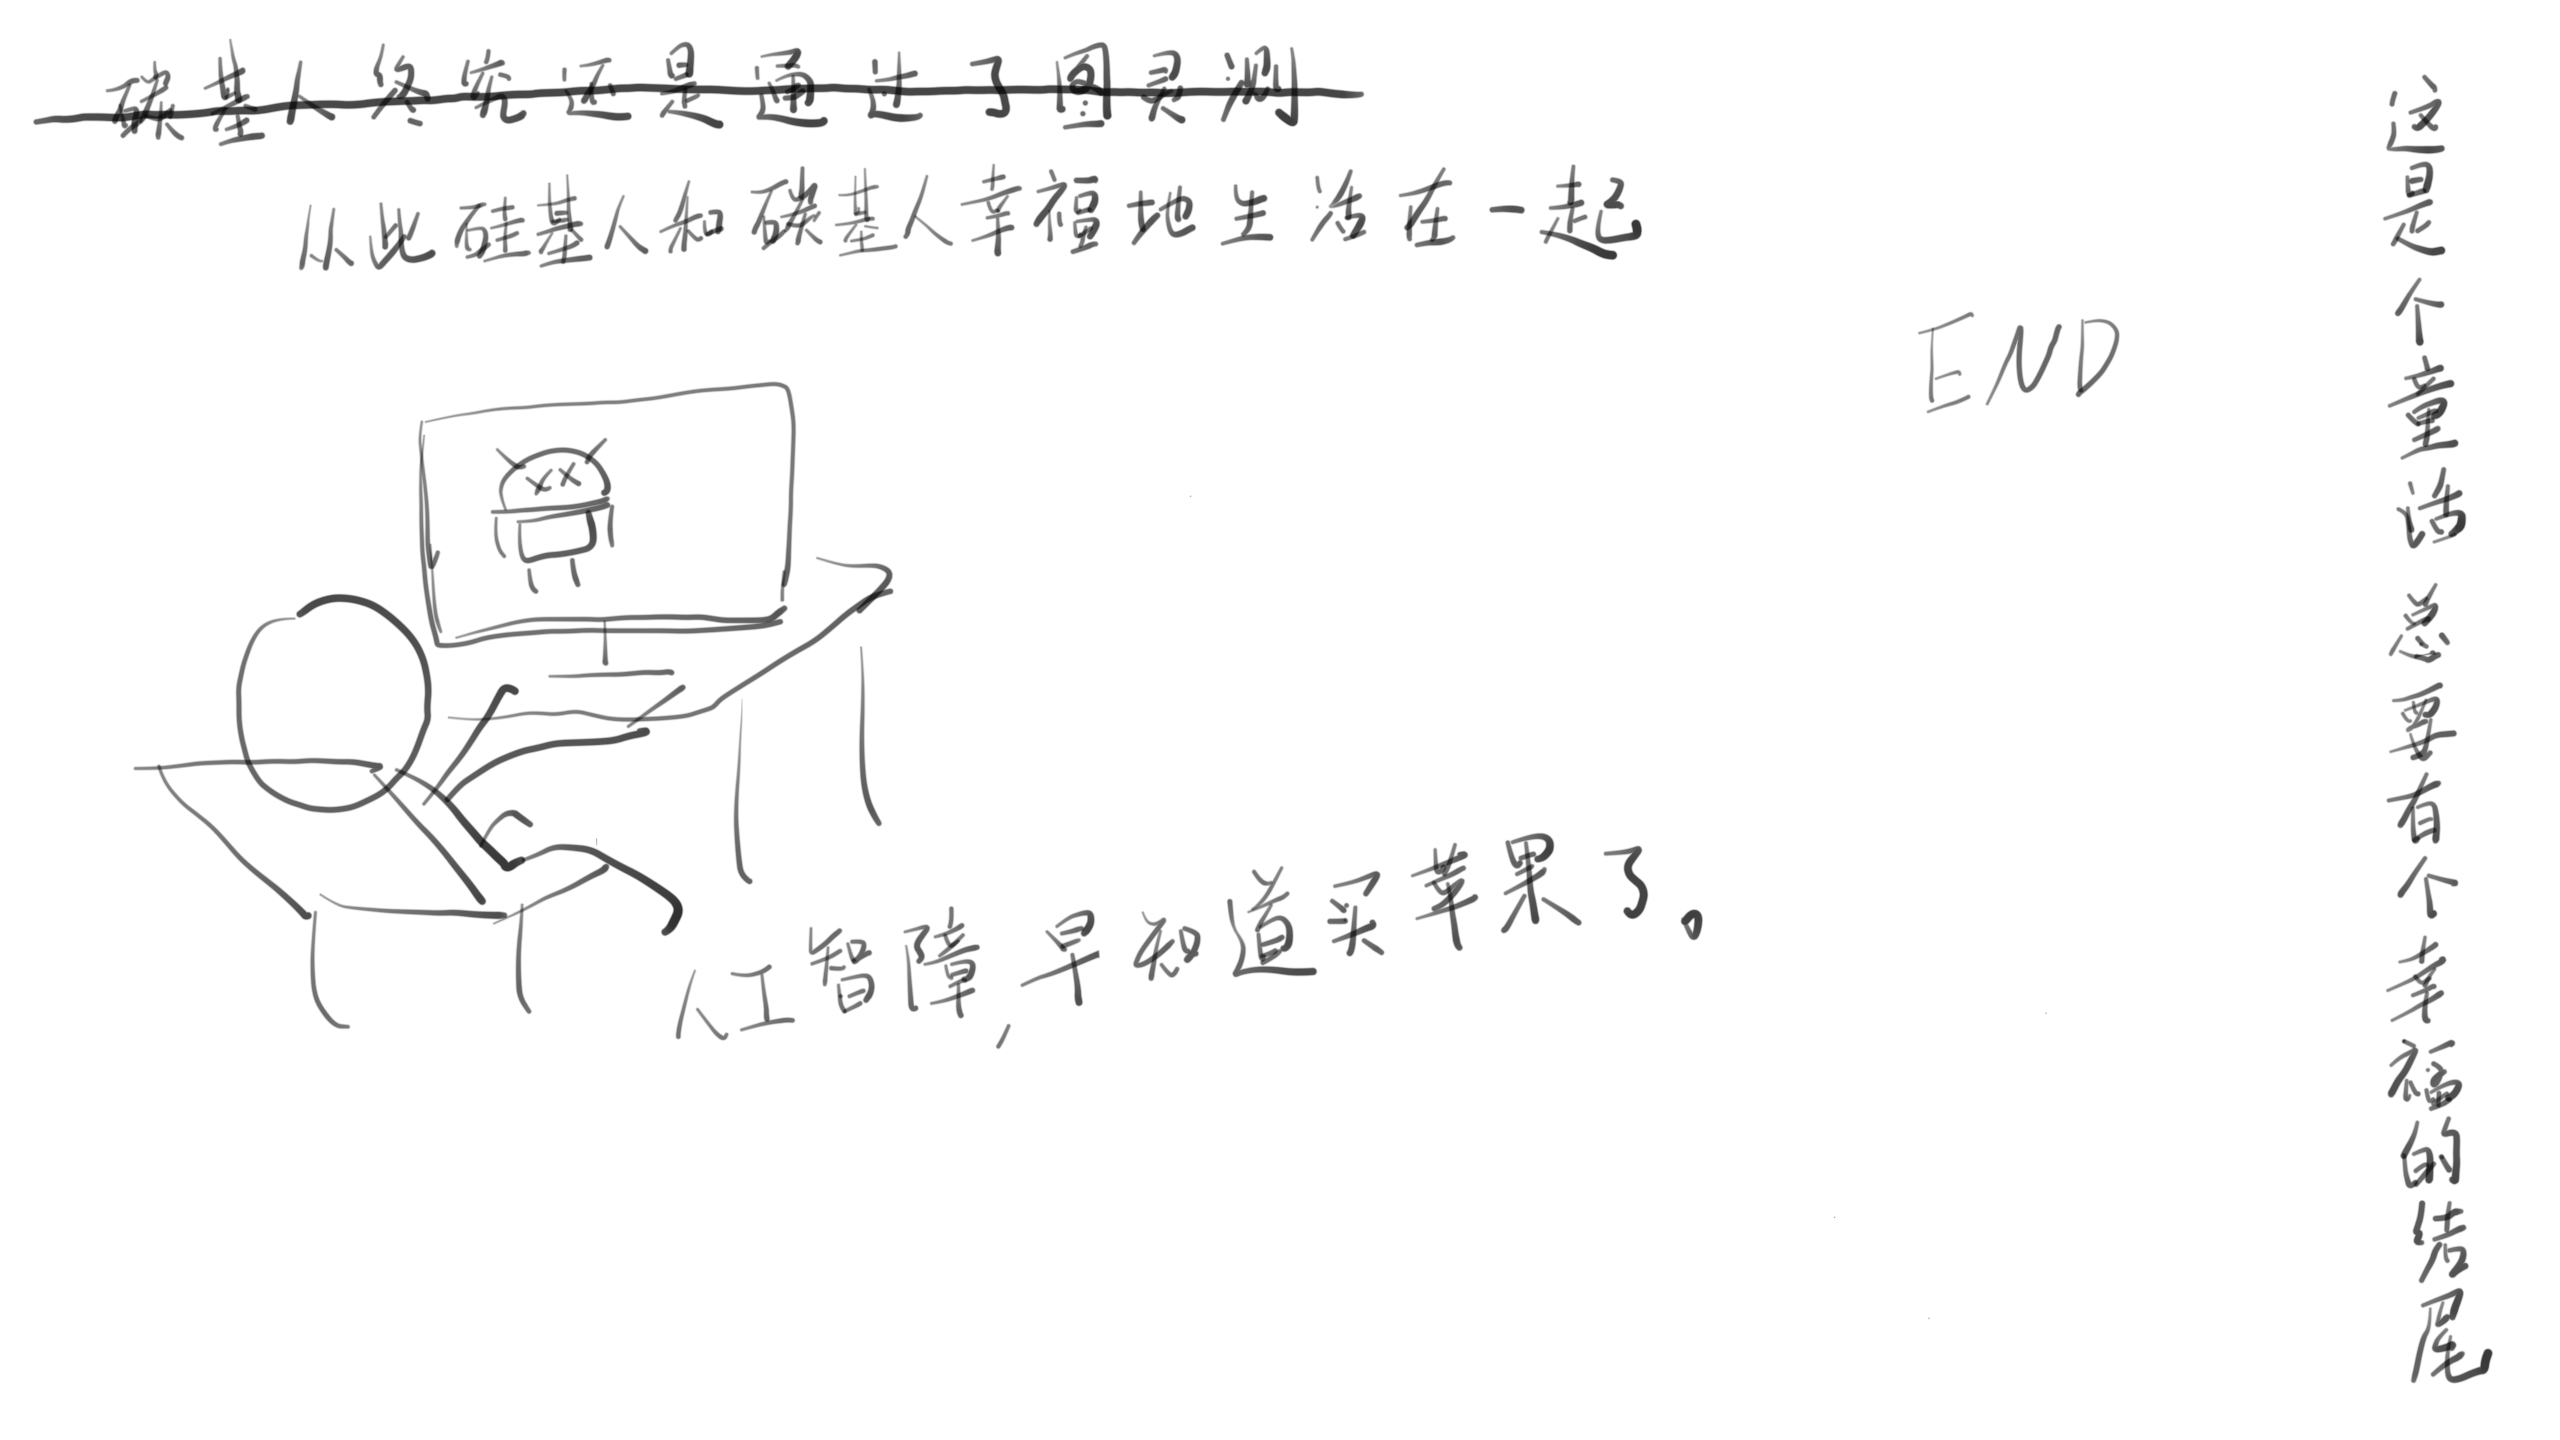 碳基人终究还是通过了图灵测
从此硅基人和碳基人幸福地生活在一起
END
人工智障,早知道买苹果了。
这是个童话总要有个幸福的结尾